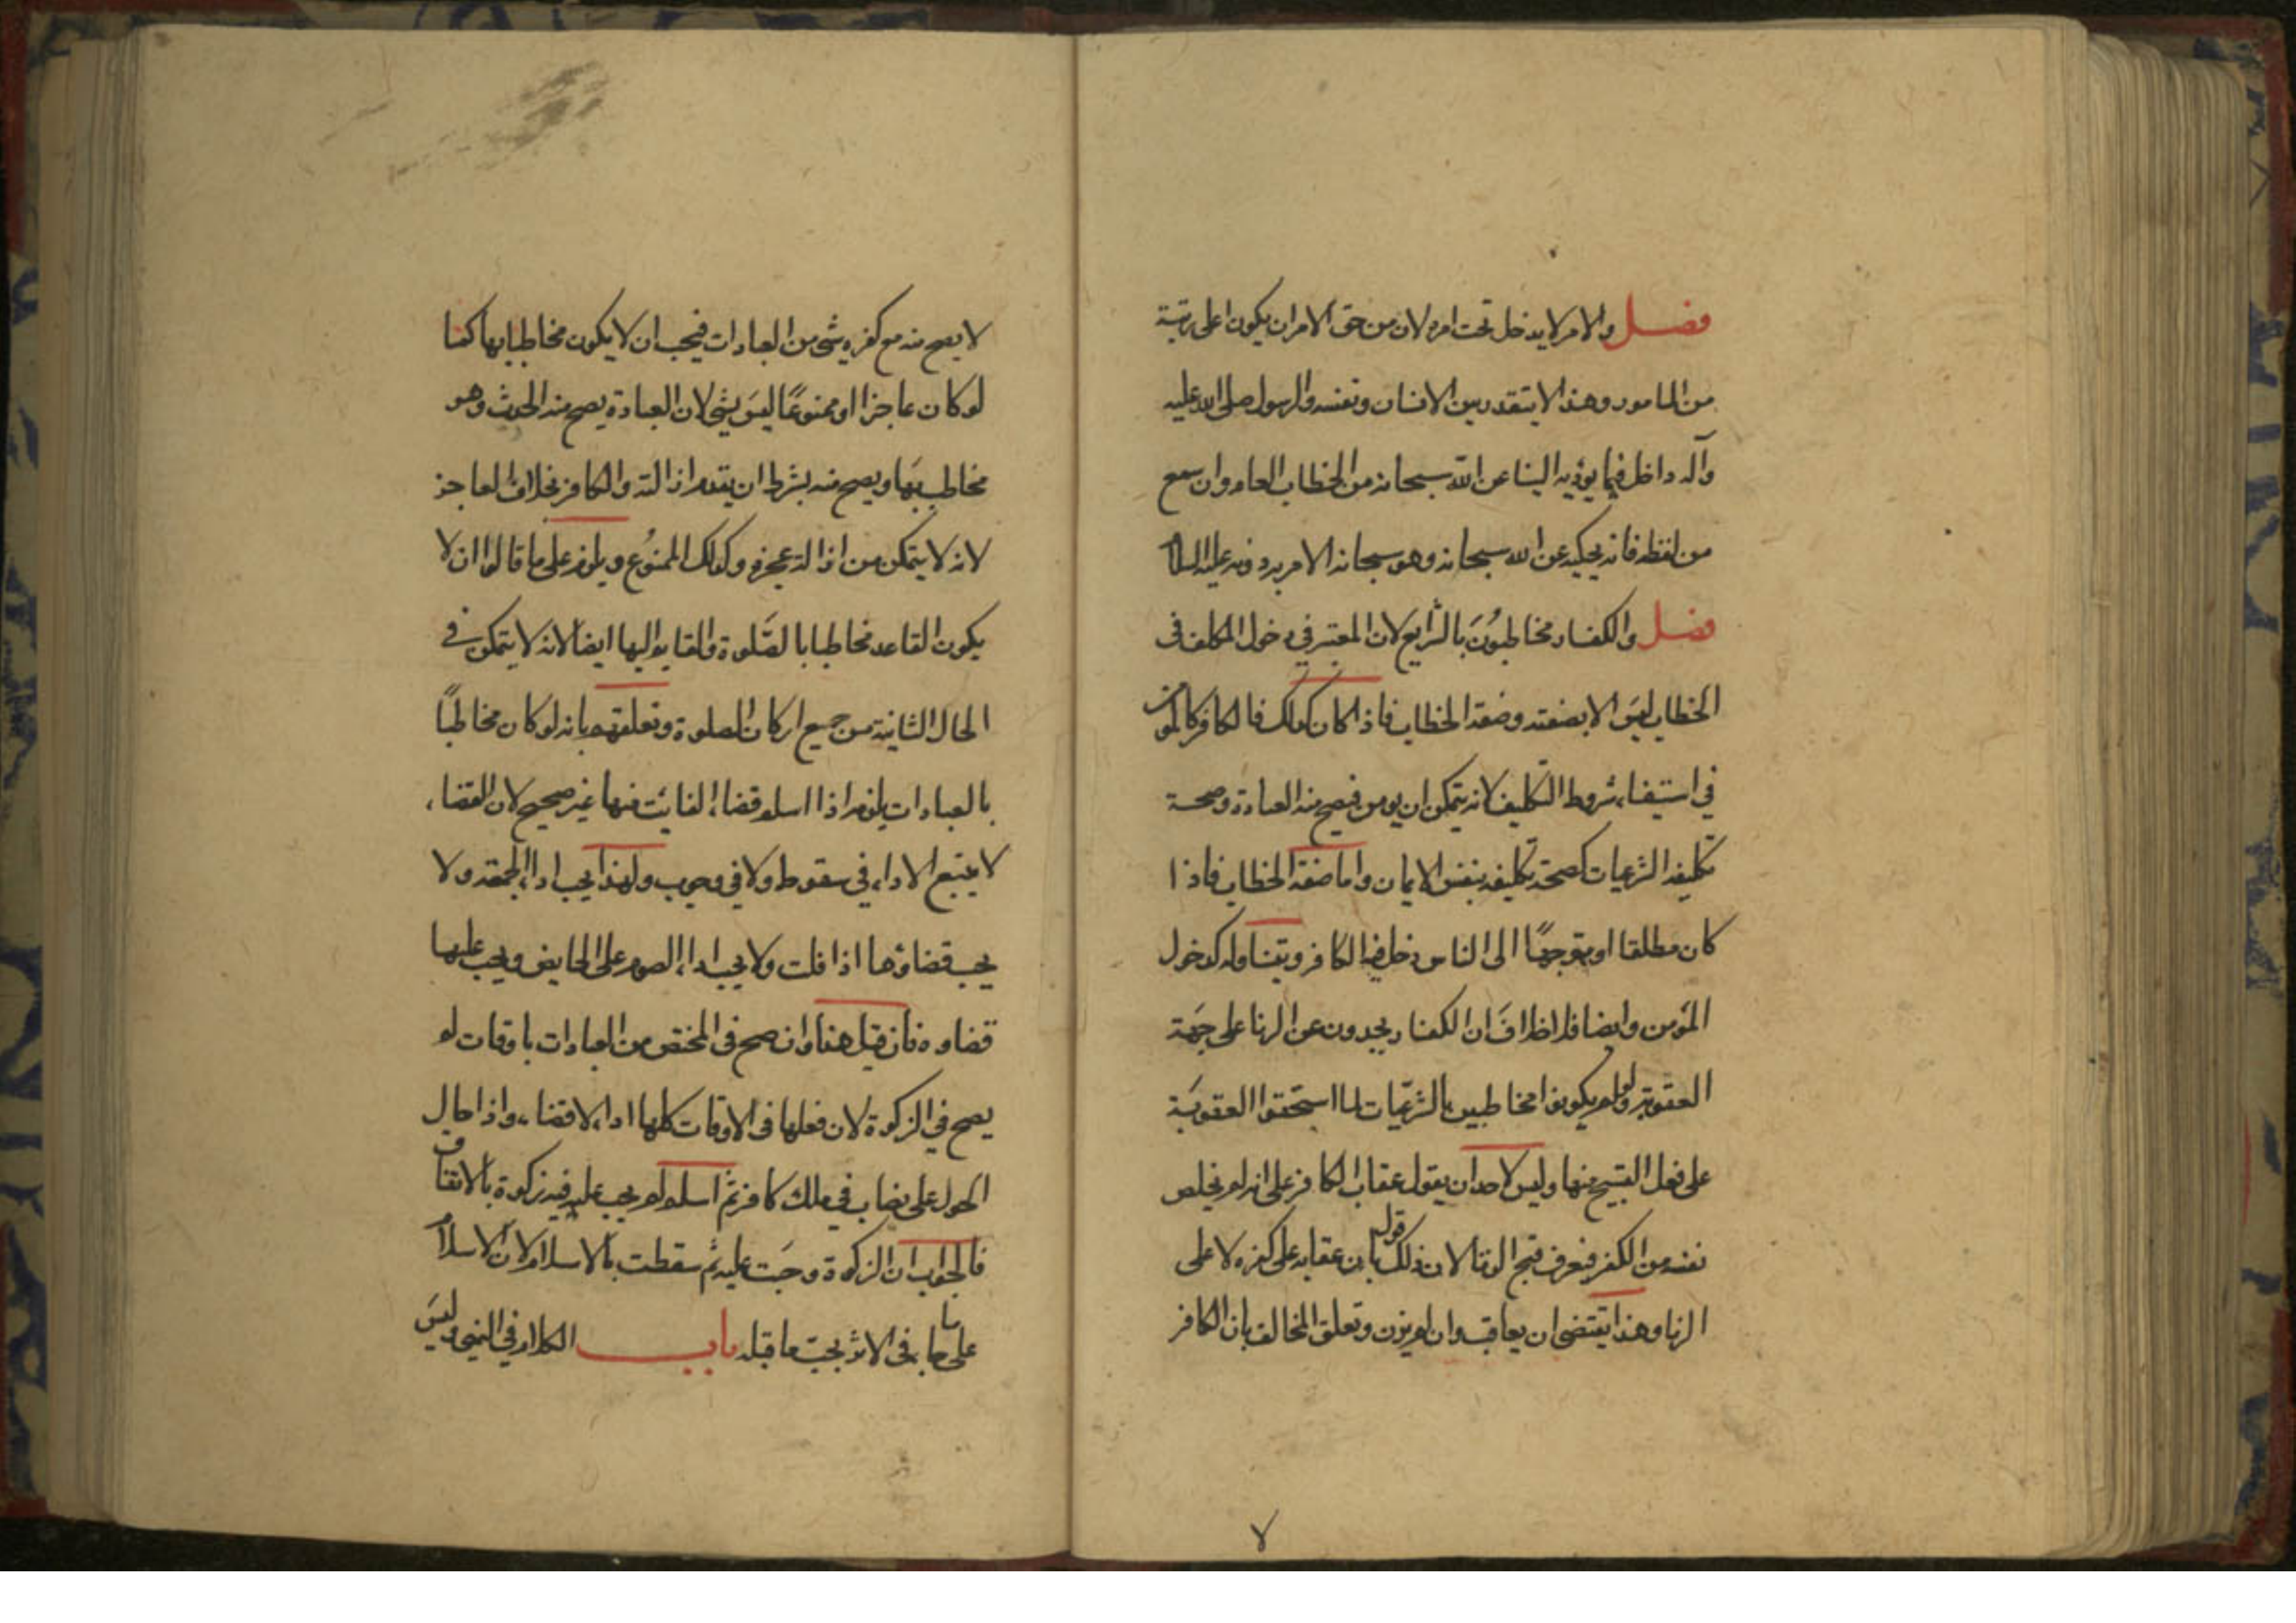 فصل والامر لا يدخل تحت امره لان من حق الامر ان يكون اعلى رتبة
من المامور وهذا لا يتقدر بين الانسان ونفسه والرسول صلى الله عليه
وآله داخل فيما يؤديه الينا عن الله سبحانه من الخطاب العام وان سمع
من لفظه فانه يحكيه عن الله سبحانه وهو سبحانه الامر به دونه عليه السلام
فصل والكفار مخاطبون بالشرايع لان المعتبر في دخول المكلف فى
الخطاب ليس الا بصفته وصفة الخطاب فاذا كان كذلك فالكافر كالمؤمن
في استيفاء شروط التكليف لانه يتمكن ان يومن فيصح منه العبادة وصحة
تكليفه الشرعيات كصحة تكليفه بنفس الايمان واما صفة الخطاب فاذا
كان مطلقا او متوجهًا الى الناس دخل فيه الكافر ويتناوله كدخول
المؤمن وايضا فلا خلاف ان الكفار يحدون عن الزنا على جهة
العقوبة ولو لم يكونوا مخاطبين بالشرعيات لما استحقوا العقوبة
على فعل القبيح منها وليس لاحد ان يقول عقاب الكافر على انه لم يخلص
نفسه من الكفر فيعرف قبح الزنا لان ذلك قول بان عقابه على كفره لا على
الزنا وهذا يقتضى ان يعاقب وان لم يزن وتعلق المخالف بان الكافر
لا يصح منه مع كفره شى من العبادات فيجب ان لا يكون مخاطبا بها كما
لو كان عاجزا او ممنوعًا ليس بشى لان العبادة يصح منه المحدث وهو
مخاطب بها ويصح منه بشرط ان يقدم ازالته والكافر بخلاف العاجز
لانه لا يتمكن من ازالة عجزه وكذلك الممنوع ويلزم على ما قالوا ان لا
يكون القاعد مخاطبا بالصلوة والقايم اليها ايضا لانه لا يتمكن في
الحال الثانية من جميع اركان الصلوة وتعلقهم بانه لو كان مخاطبًا
بالعبادات يلزم اذا اسلم قضاء الفائت منها غير صحيح لان القضاء
لا يتبع الاداء في سقوط ولا في وجوب ولهذا يجب اداء الجمعة ولا
يجب قضاؤها اذا فاتت ولا يجب اداء الصوم على الحايض ويجب عليها
قضاوه فان قيل هذا وان صح فى المختص من العبادات باوقات لم
يصح في الزكوة لان فعلها فى الاوقات كلها اداء لا قضاء واذا حال
الحول على نصاب في ملك كافر ثم اسلم لم يجب عليه فيه زكوة بالاتفاق
فالجواب ان الزكوة وجبت عليه ثم سقطت بالاسلام لان الاسلام
على ما جا فى الاثر يجب ما قبله باب الكلام في النهى وليس